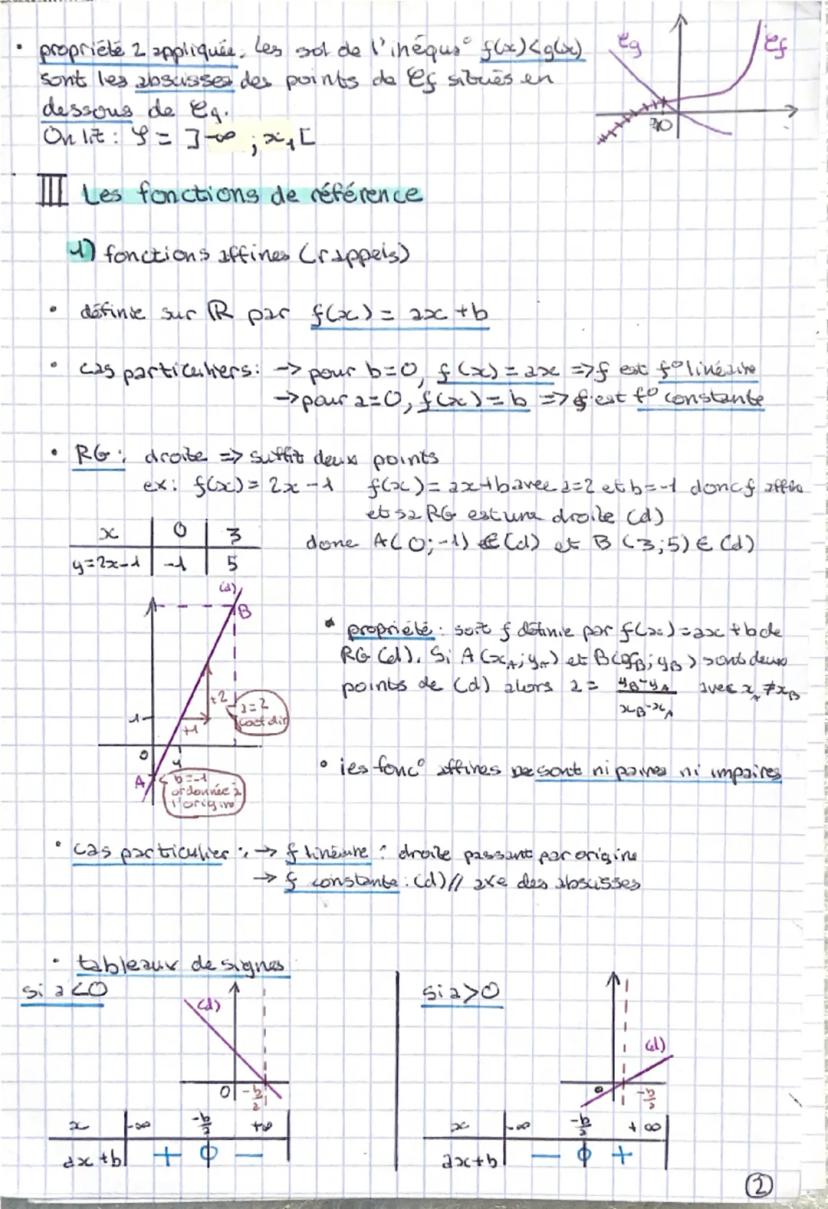 • propriété 2 appliquée. Les sol de l'inéqu° f(x)<g(x)
sont les abscisses des points de Cf situés en
dessous de Cg.
On lit : S = ]-∞ ; x₁[
Cg
Cf
0
III Les fonctions de référence
1) fonctions affines (rappels)
• définie sur ℝ par f(x) = ax + b
• cas particuliers : -> pour b=0, f(x) = ax => f est f° linéaire
-> pour a=0, f(x) = b => f est f° constante
• RG : droite => suffit deux points
ex : f(x) = 2x - 1 f(x) = ax+b avec a=2 et b=-1 donc f affine
et sa RG est une droite (d)
x 0 3
y=2x-1 -1 5
donc A(0;-1) ∈ (d) et B (3;5) ∈ (d)
(d)
B
+2
+1
a=2
coef dir
1
0
1
A
b=-1
ordonnée à
l'origine
• propriété : soit f définie par f(x) = ax + b de
RG (d). Si A(xA;yA) et B(xB;yB) sont deux
points de (d) alors a = yB-yA / xB-xA avec xA ≠ xB
• les fonc° affines ne sont ni paires ni impaires
• cas particulier : -> f linéaire : droite passant par origine
-> f constante : (d) // axe des abscisses
• tableaux de signes
si a<0
(d)
0
-b/a
x -∞ -b/a +∞
ax+b + 0 -
si a>0
(d)
0
-b/a
x -∞ -b/a +∞
ax+b - 0 +
2